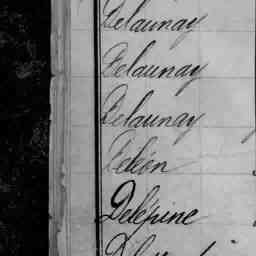 Delaunay
Delaunay
Delaunay
Deléon
Delépine